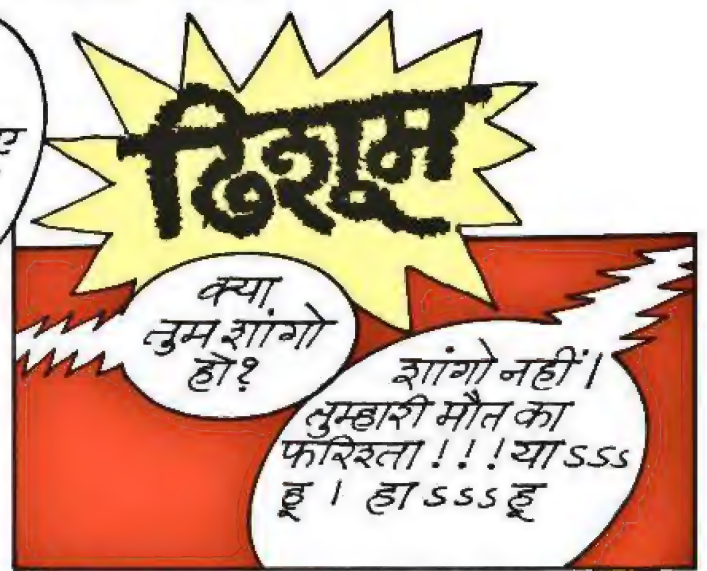 ढिशूम
क्या
तुम शांगो
हो?
शांगो नहीं।
तुम्हारी मौत का
फरिश्ता!!! या ऽऽऽ
हू। हा ऽऽऽ हू